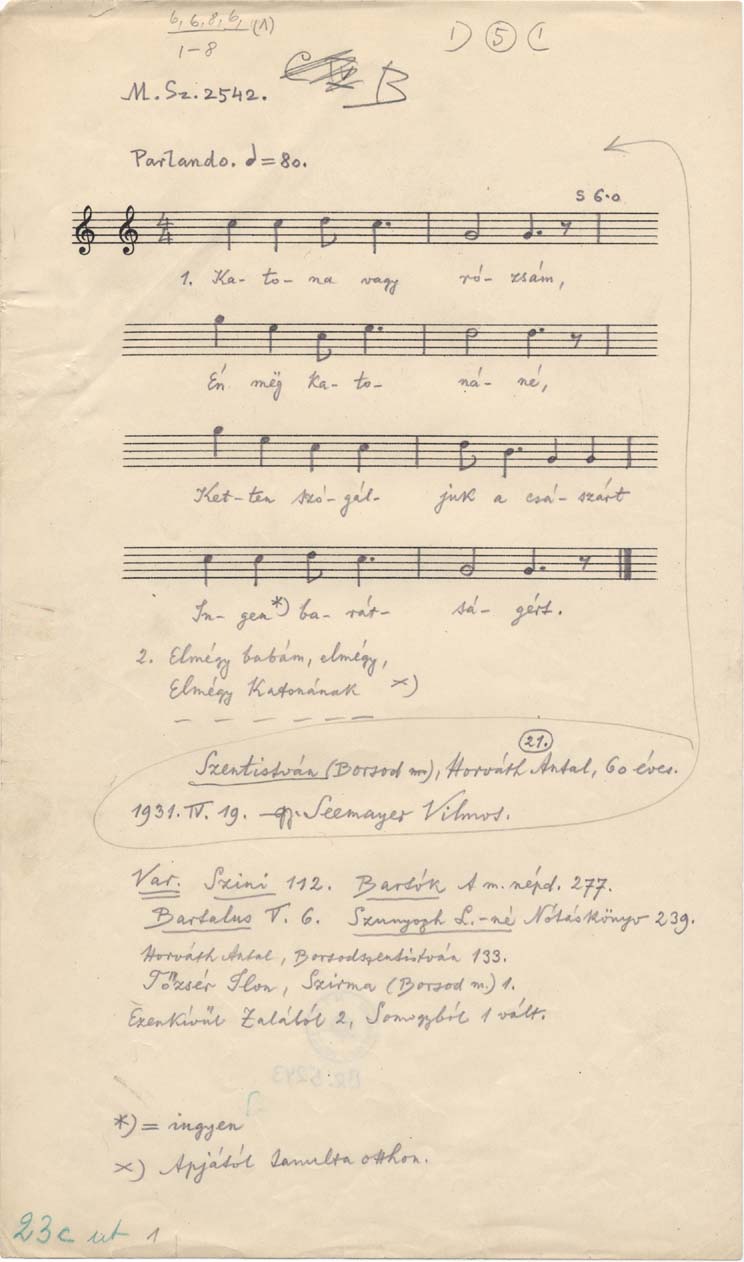 6, 6, 8, 6, (1)
1-8
1) 5 (
M. Sz. 2542. B
Parlando. = 80.
4 4
S 6.0
1. Ka- to- na vagy ró- zsám,
Én mëg ka- to- ná- né,
Ket-ten szó-gál- juk a csá- szárt
In- gen*) ba- rát- sá- gért.
2. Elmégy babám, elmégy,
Elmégy Katonának ×)
— — — — — —
21.
Szentistván (Borsod m.), Horváth Antal, 60 éves.
1931. IV. 19. Seemayer Vilmos.
Var. Szini 112. Bartók A m. népd. 277.
Bartalus V. 6. Szunyogh L.-né Nótáskönyv 239.
Horváth Antal, Borsodszentistván 133.
Tőzsér Ilon, Szirma (Borsod m.) 1.
Ezenkívül Zalából 2, Somogyból 1 vált.
*) = ingyen
×) Apjától tanulta otthon.
23c ut 1